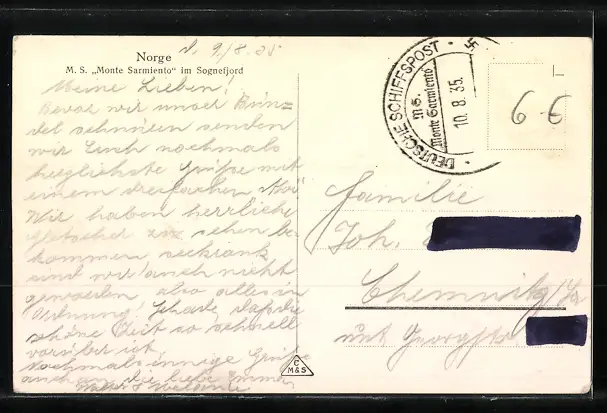 Norge
M. S. „Monte Sarmiento“ im Sognefjord
d. 9/8.35
Meine Lieben!
Bevor wir unser Bün=
del schnüren senden
wir Euch nochmals
herzlichste Grüße mit
einem dreifachen
Wir haben herrliche
Gletscher zu sehen be
kommen seekrank
sind wir auch nicht
geworden, also alles in
Ordnung! Schade, daß die
schöne Zeit so schnell
vorüber ist.
Nochmals innige Grüße
auch
DEUTSCHE SCHIFFSPOST
M.S.
Monte Sarmiento
10.8.35.
6-6
Familie
Joh.
Chemnitz
Georgstr
C
M&S